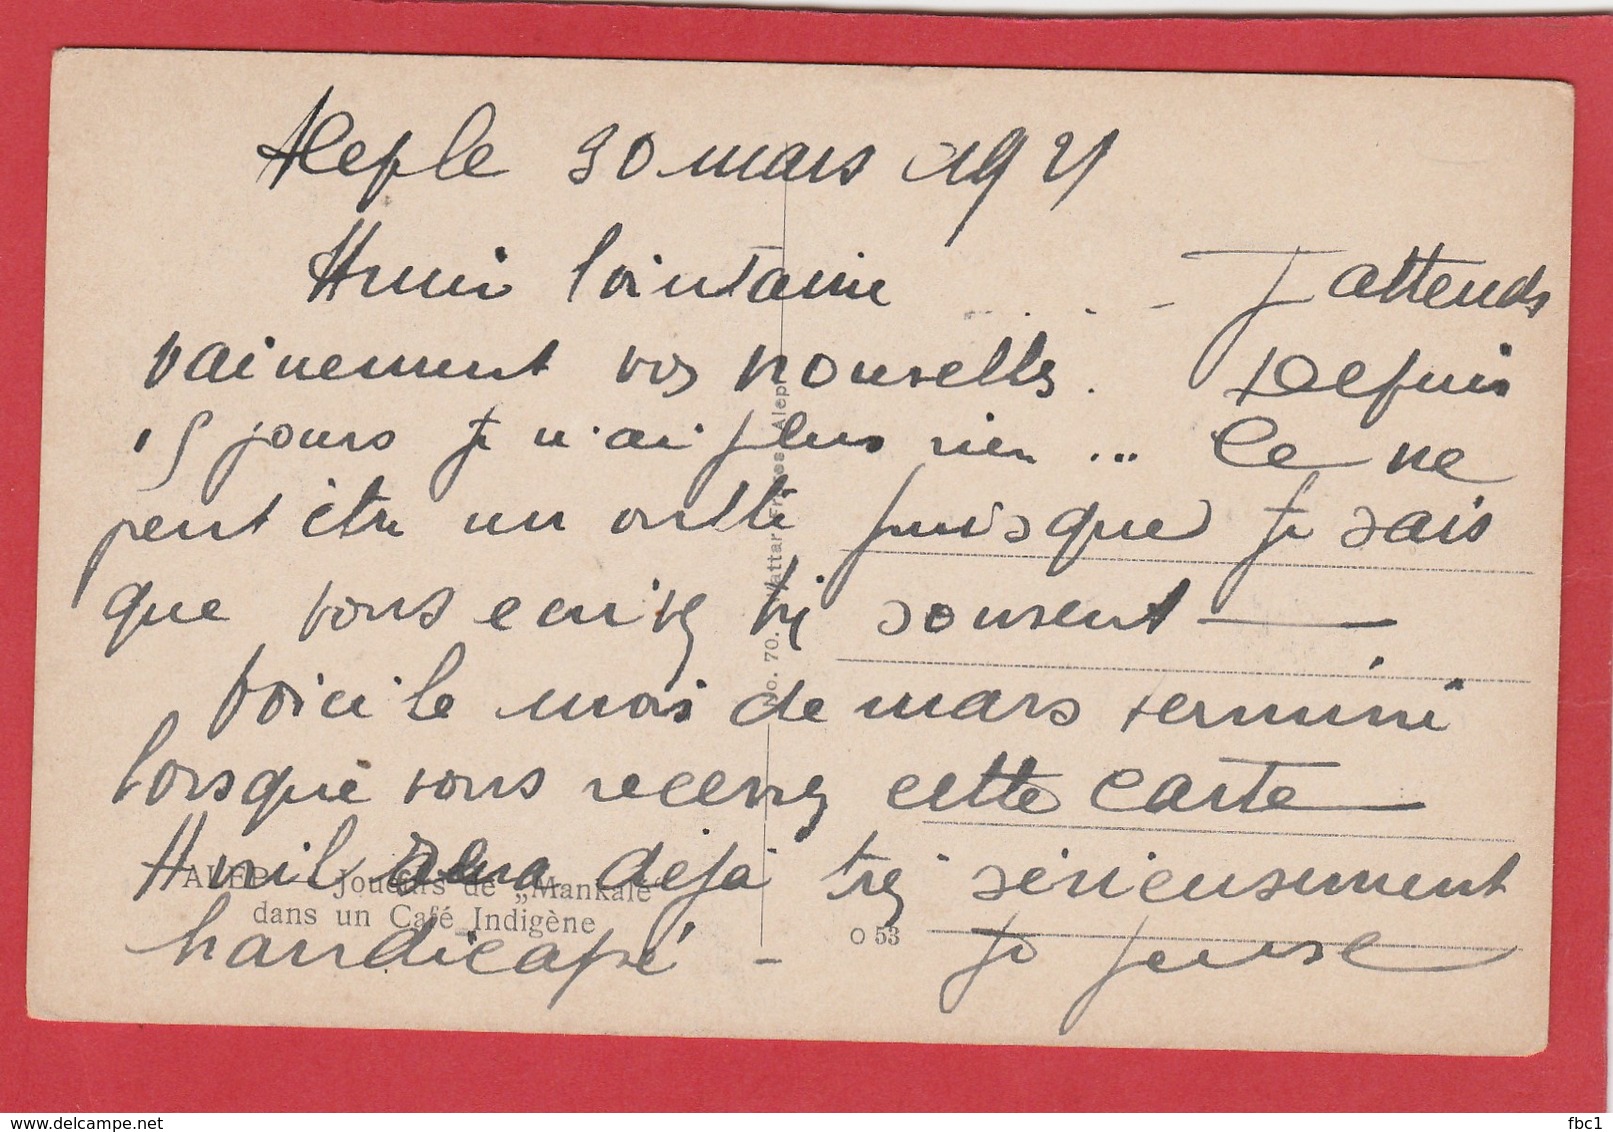 Alep le 30 mars 1921
Amie lointaine . . . - J'attends
vainement vos nouvelles. Depuis
15 jours je n'ai plus rien ... Ce ne
peut être un oubli puisque je sais
que vous ecrivez si souvent —
Voici le mois de mars terminé
lorsque vous recevrez cette carte
Avril sera déjà très sérieusement
handicapé - Je pense
ALEP — Joueurs de „Mankale"
dans un Café Indigène
No. 70. Wattar Frères Alep
O 53
fbc1